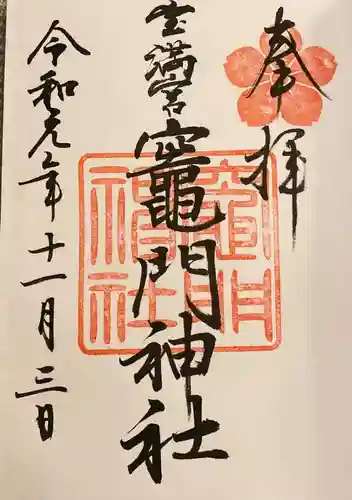 奉拝
宝満宮竈門神社
令和元年十一月三日
竈門神社